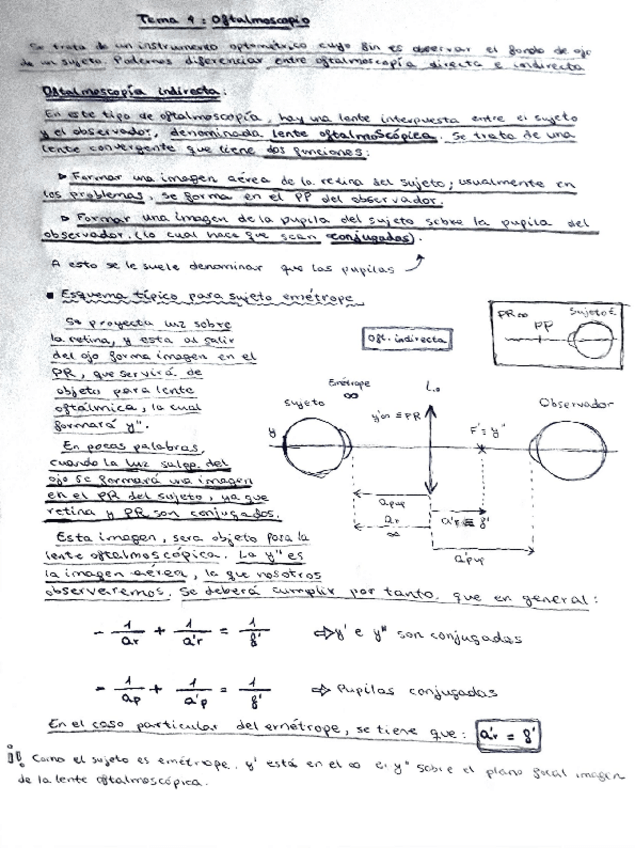 Tema 4: Oftalmoscopio
Se trata de un instrumento optométrico cuyo fin es observar el fondo de ojo
de un sujeto. Podemos diferenciar entre oftalmoscopía directa e indirecta
Oftalmoscopía indirecta:
En este tipo de oftalmoscopía, hay una lente interpuesta entre el sujeto
y el observador, denominada lente oftalmoscópica. Se trata de una
lente convergente que tiene dos funciones:
▷ Formar una imagen aérea de la retina del sujeto; usualmente en
los problemas, se forma en el PP del observador.
▷ Formar una imagen de la pupila del sujeto sobre la pupila del
observador. (Lo cual hace que sean conjugadas).
A esto se le suele denominar que las pupilas
▪ Esquema típico para sujeto emétrope
Se proyecta luz sobre
la retina, y esta al salir
del ojo forma imagen en el
PR, que servirá de
objeto para lente
oftálmica, la cual
formará y".
En pocas palabras,
cuando la luz salga del
ojo se formará una imagen
en el PR del sujeto, ya que
retina y PR son conjugados.
Oft. indirecta
PR∞
PP
Sujeto E.
Emétrope
∞
Sujeto
y'∞ ≡ PR
L.o
F' ≡ y"
Observador
y
apup
ar
∞
a'r ≡ f'
a'pup
Esta imagen, será objeto para la
lente oftalmoscópica. La y" es
la imagen aérea, la que nosotros
observaremos. Se deberá cumplir por tanto, que en general:
- 1/ar + 1/a'r = 1/f' ⇨ y' e y" son conjugados
- 1/ap + 1/a'p = 1/f' ⇨ Pupilas conjugadas
En el caso particular del emétrope, se tiene que: a'r = f'
¡! Como el sujeto es emétrope, y' está en el ∞ e y" sobre el plano focal imagen
de la lente oftalmoscópica.